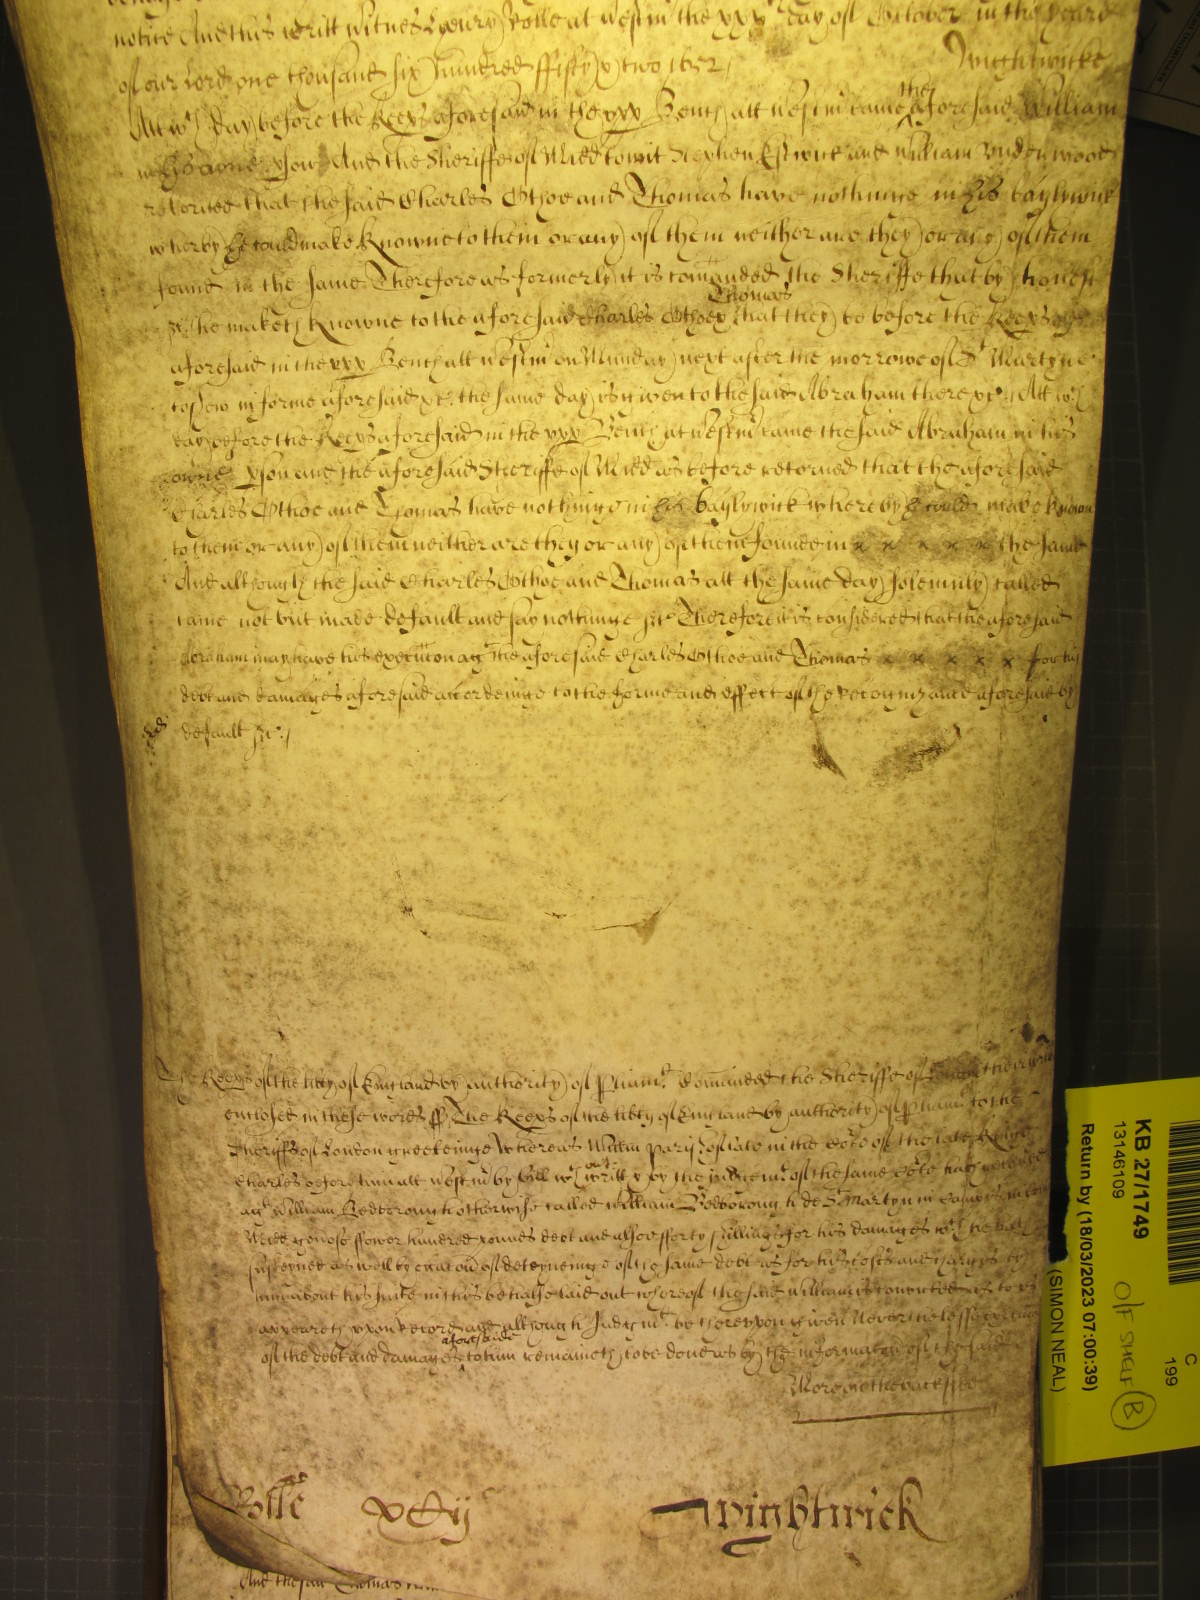 notice And this writt witnes Henry Rolle at westm the xxx day of October in the yeare
of our Lord one thousand six hundred fifty & two 1652
Wightwicke
Att wch day before the Keeps aforesaid in the vpp Bench att westm came the aforesaid William
in his owne pson And the Sheriffe of Midd to wit Stephen Estwick and William Underwood
retorned that the said Charles Othoe and Thomas have nothinge in his baylywick
wherby he could make knowne to them or any of them neither are they or any of them
found in the same Therefore as formerly it is comanded the Sheriffe that by honest
&c he maketh knowne to the aforesaid Charles Othoe & Thomas that they be before the Keeps
aforesaid in the vpp Bench att westm on Munday next after the morrowe of St Martyne
to shew in forme aforesaid &c the same day is given to the said Abraham there &c Att wch
day before the Keeps aforesaid in the vpp Bench at westm came the said Abraham in his
owne pson and the aforesaid Sheriffe of Midd as before retorned that the aforesaid
Charles Othoe and Thomas have nothinge in his baylywick whereby he could make knowne
to them or any of them neither are they or any of them found in x x x x x the same
And although the said Charles Othoe and Thomas att the same day solemnly called
came not but made default and say nothinge &c Therefore it is considered that the aforesaid
Abraham may have his execucon agt the aforesaid Charles Othoe and Thomas x x x x x for his
debt and damages aforesaid accordeinge to the forme and effect of the recognizance aforesaid by
default &c
The Keeps of the libty of England by authority of Parliamt Comanded the Sheriffe of their writt
enclosed in these words ss The Keeps of the libty of England by authority of Parliamt to the
Sheriffs of London greeteinge Whereas Willm Parish of late in the Cote of the late Kinge
Charles before him att westm by bill wthout writt & by the judgemt of the same Cote hath recoved
agt William Bedborough otherwise called William Bedborough de St Martyn in
Midd genose ffower hundred pounds debt and also fforty shillings for his damages wch he hath
susteyned as well by occacon of deteyneinge of the same debt as for his costs and charges by
him about his suite in this behalfe laid out whereof the said William is convicted as to vs
appeareth vppon record and although Judgmt be therevpon given Neverthelesse execucon
of the debt and damages aforesaid to him remaineth to be done as by the informacon of the said
More on the backside
Rolle xCij Wightwick
And the said Thomas
KB 27/1749
13146109
Return by (18/03/2023 07:00:39)
(SIMON NEAL)
O/F SHELF B
C
199